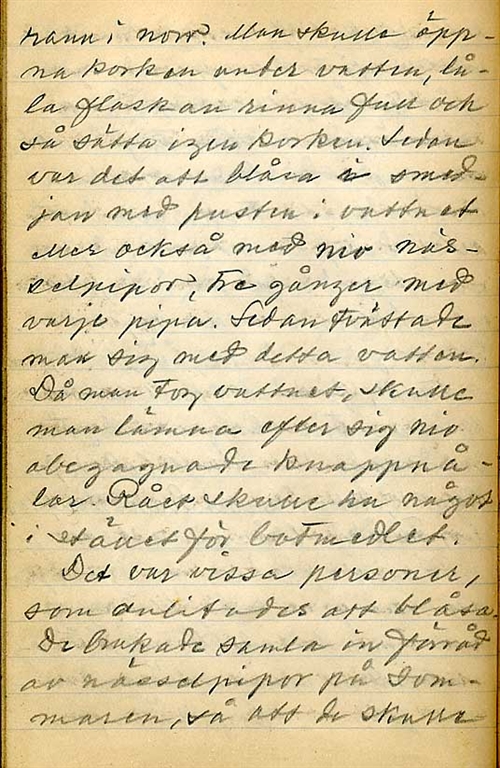 rann i norr. Man skulle öpp-
na korken under vatten, lå-
ta flaskan rinna full och
så sätta igen korken. Sedan
var det att blåsa i smed-
jan med pusten i vattnet
eller också med nio näs-
selpipor, tre gånger med
varje pipa. Sedan tvättade
man sig med detta vatten.
Då man tog vattnet, skulle
man lämna efter sig nio
obegagnade knappnå-
lar. Rået skulle ha något
i stället för botmedlet.
Det var vissa personer,
som anlitades att blåsa.
De brukade samla in förråd
av nässelpipor på som-
maren, så att de skulle